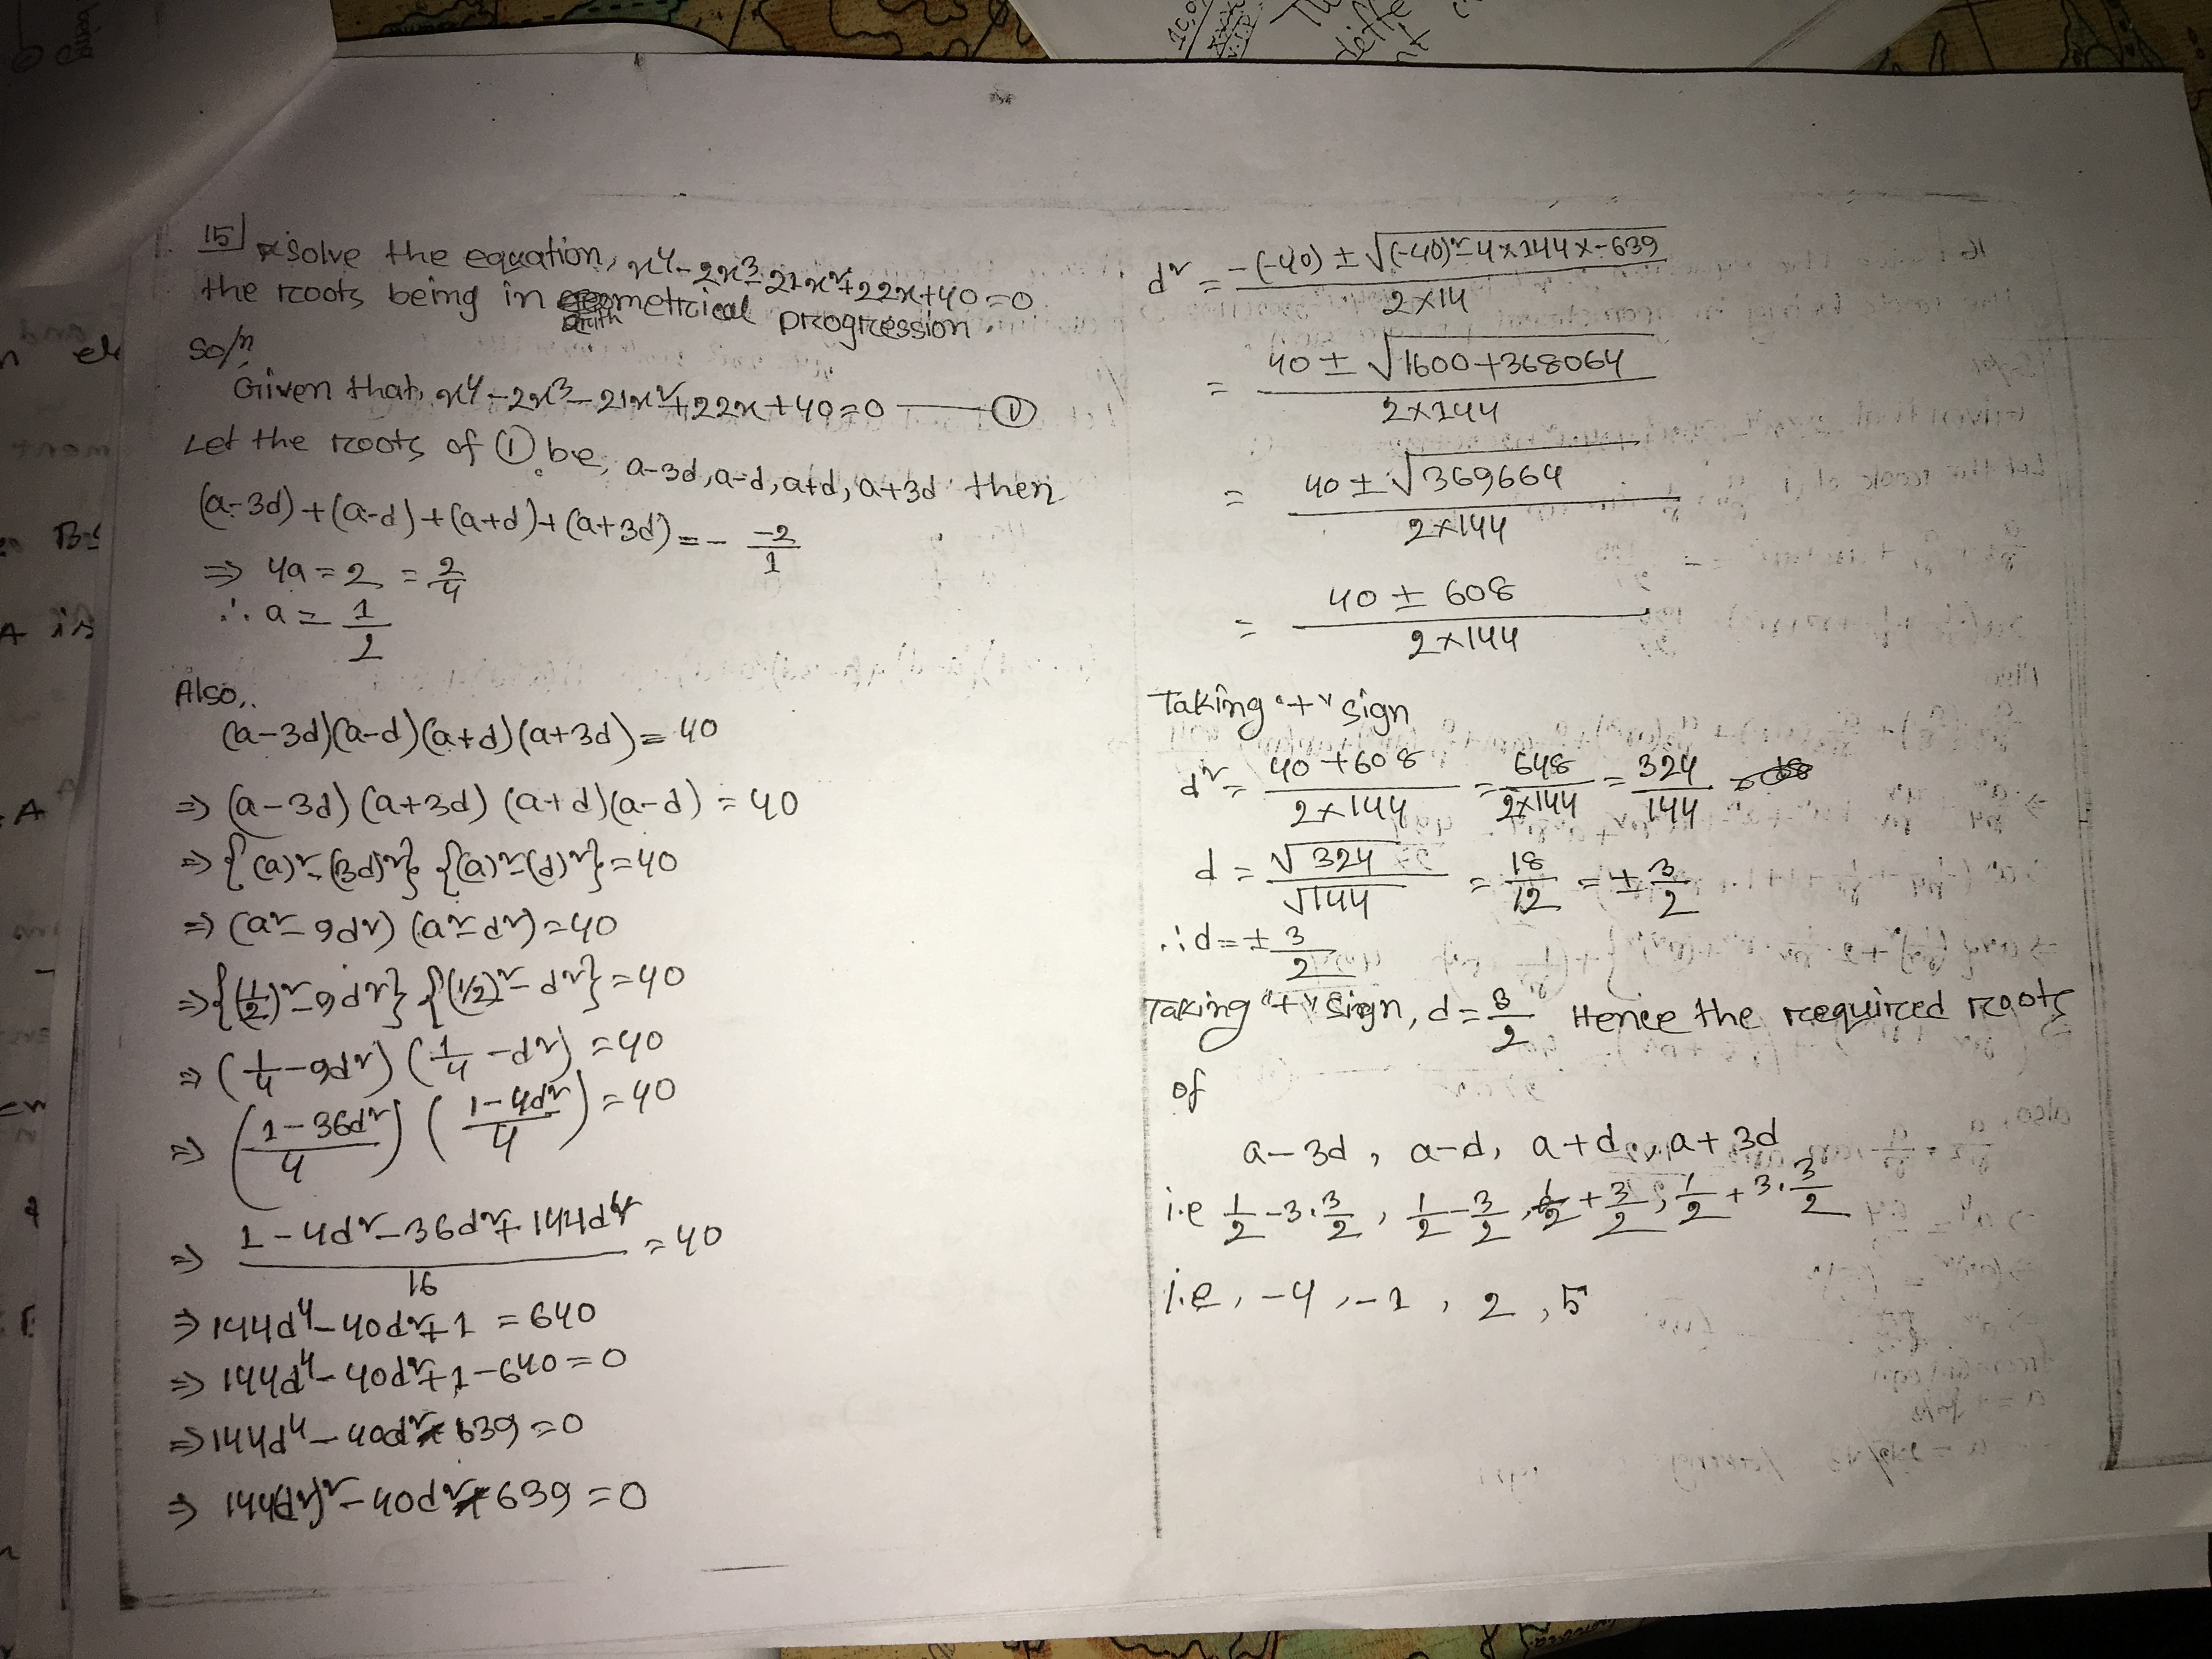 15] Solve the equation, x⁴-2x³-21x²+22x+40=0
the roots being in arithmetical progression.
Solⁿ
Given that, x⁴-2x³-21x²+22x+40=0 —— ①
Let the roots of ① be, a-3d, a-d, a+d, a+3d then
(a-3d)+(a-d)+(a+d)+(a+3d)=- -2/1
⇒ 4a=2 = 2/4
∴ a= 1/2
Also,.
(a-3d)(a-d)(a+d)(a+3d)=40
⇒ (a-3d)(a+3d)(a+d)(a-d)=40
⇒ {(a)²-(3d)²} {(a)²-(d)²}=40
⇒ (a²-9d²)(a²-d²)=40
⇒ {(1/2)²-9d²} {(1/2)²-d²}=40
⇒ (1/4-9d²)(1/4-d²)=40
⇒ ((1-36d²)/4)((1-4d²)/4)=40
⇒ (1-4d²-36d²+144d⁴)/16=40
⇒ 144d⁴-40d²+1=640
⇒ 144d⁴-40d²+1-640=0
⇒ 144d⁴-40d²-639=0
⇒ 144(d²)²-40d²-639=0
d² = (-(-40)±√((-40)²-4×144×-639))/(2×14)
= (40±√(1600+368064))/(2×144)
= (40±√369664)/(2×144)
= (40±608)/(2×144)
Taking "+" sign
d² = (40+608)/(2×144) = 648/(2×144) = 324/144
d = √324/√144 = 18/12 = ±3/2
∴ d=±3/2
Taking "+" sign, d=3/2 Hence the required roots
of
a-3d, a-d, a+d, a+3d
i.e 1/2-3.3/2, 1/2-3/2, 1/2+3/2, 1/2+3.3/2
i.e, -4, -1, 2, 5